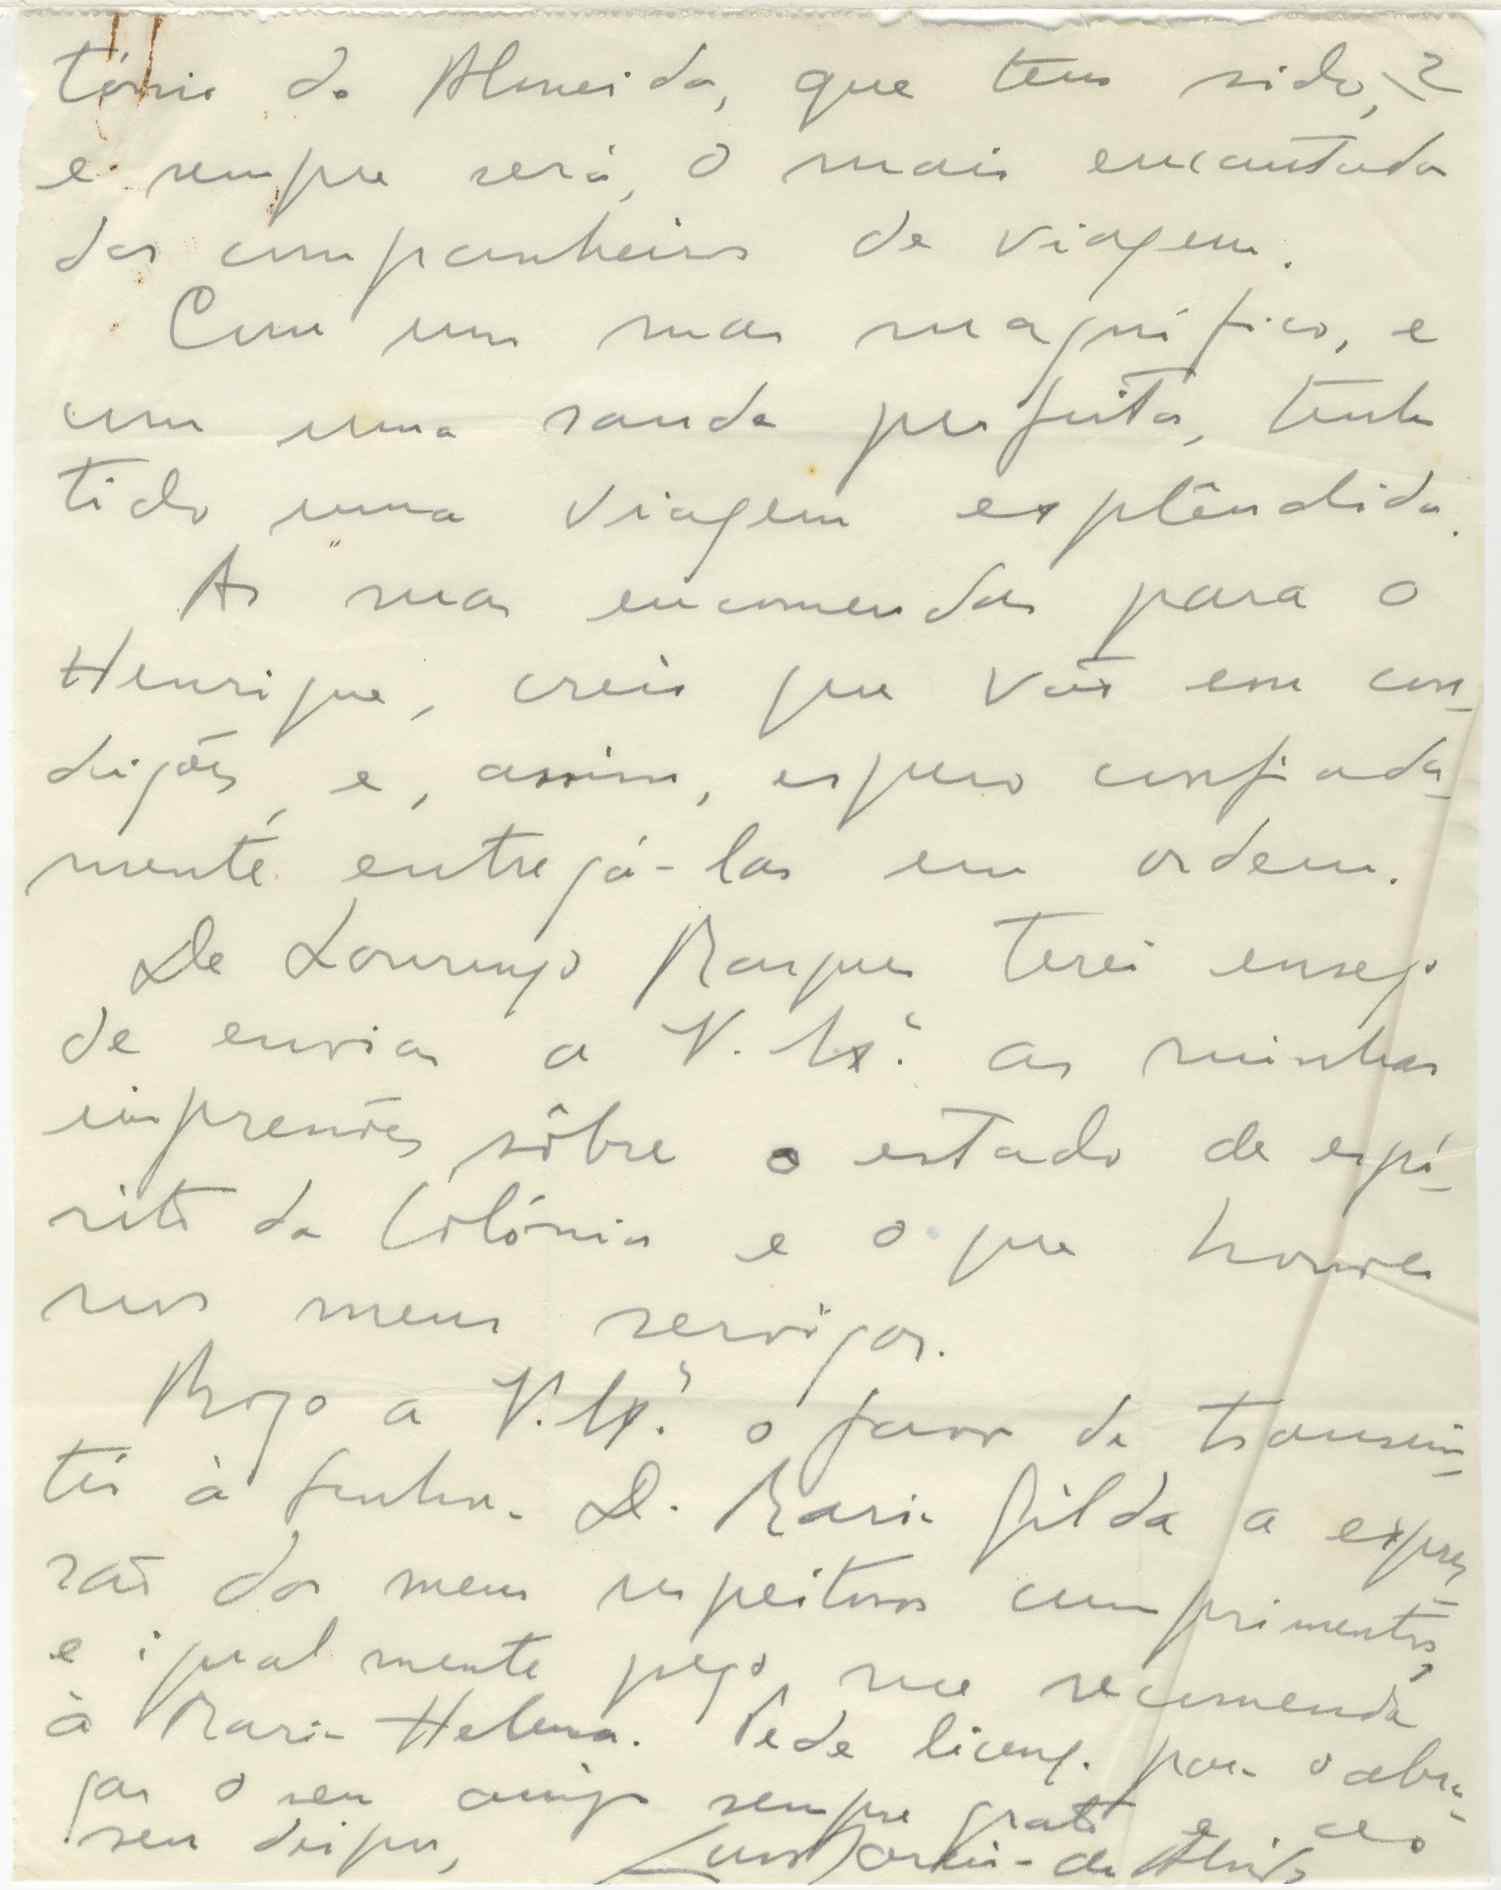 tónio de Almeida, que tem sido, 2
e sempre será, o mais encantador
dos companheiros de viagem.
Com um mar magnífico, e
com uma saude perfeita, tenho
tido uma viagem esplêndida.
As suas encomendas para o
Henrique, creio que vão em con-
dições, e, assim, espero confiada-
mente entregá-las em ordem.
De Lourenço Marques terei ensejo
de enviar a V. Exª. as minhas
impressões sôbre o estado de espí-
rito da Colónia e o que houver
nos meus serviços.
Rogo a V. Exª. o favor de transmi-
tir à Senhora D. Maria Gilda a expres-
são dos meus respeitosos cumprimentos,
e igualmente peço me recomende
à Maria Helena. Pede licença para o abra-
çar o seu amigo sempre grato e
seu